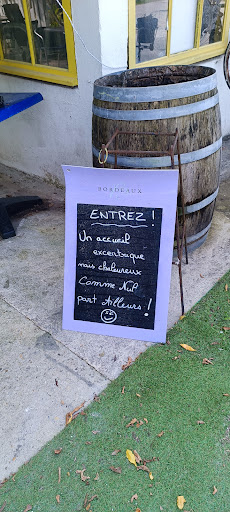 BORDEAUX
ENTREZ !
Un accueil
excentrique
mais chaleureux
Comme Nul
part Ailleurs !